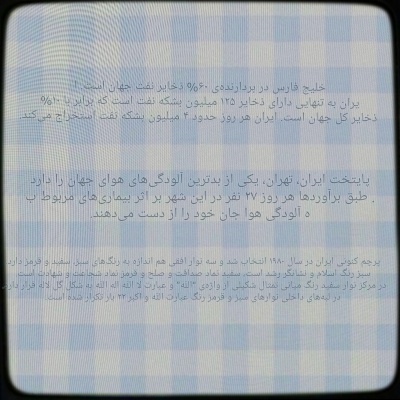 خلیج فارس در بردارنده‌ی ۶۰% ذخایر نفت جهان است. ا
یران به تنهایی دارای ذخایر ۱۲۵ میلیون بشکه نفت است که برابر با ۱۰%
ذخایر کل جهان است. ایران هر روز حدود ۴ میلیون بشکه نفت استخراج می‌کند.
پایتخت ایران، تهران، یکی از بدترین آلودگی‌های هوای جهان را دارد
. طبق برآوردها هر روز ۲۷ نفر در این شهر بر اثر بیماری‌های مربوط ب
ه آلودگی هوا جان خود را از دست می‌دهند.
پرچم کنونی ایران در سال ۱۹۸۰ انتخاب شد و سه نوار افقی هم اندازه به رنگ‌های سبز، سفید و قرمز دارد
سبز رنگ اسلام و نشانگر رشد است، سفید نماد صداقت و صلح و قرمز نماد شجاعت و شهادت است.
در مرکز نوار سفید رنگ میانی تمثال شکیلی از واژه‌ی "الله" و عبارت لا اله الا الله به شکل گل لاله قرار دارد.
در لبه‌های داخلی نوارهای سبز و قرمز رنگ عبارت الله و اکبر ۲۲ بار تکرار شده است.